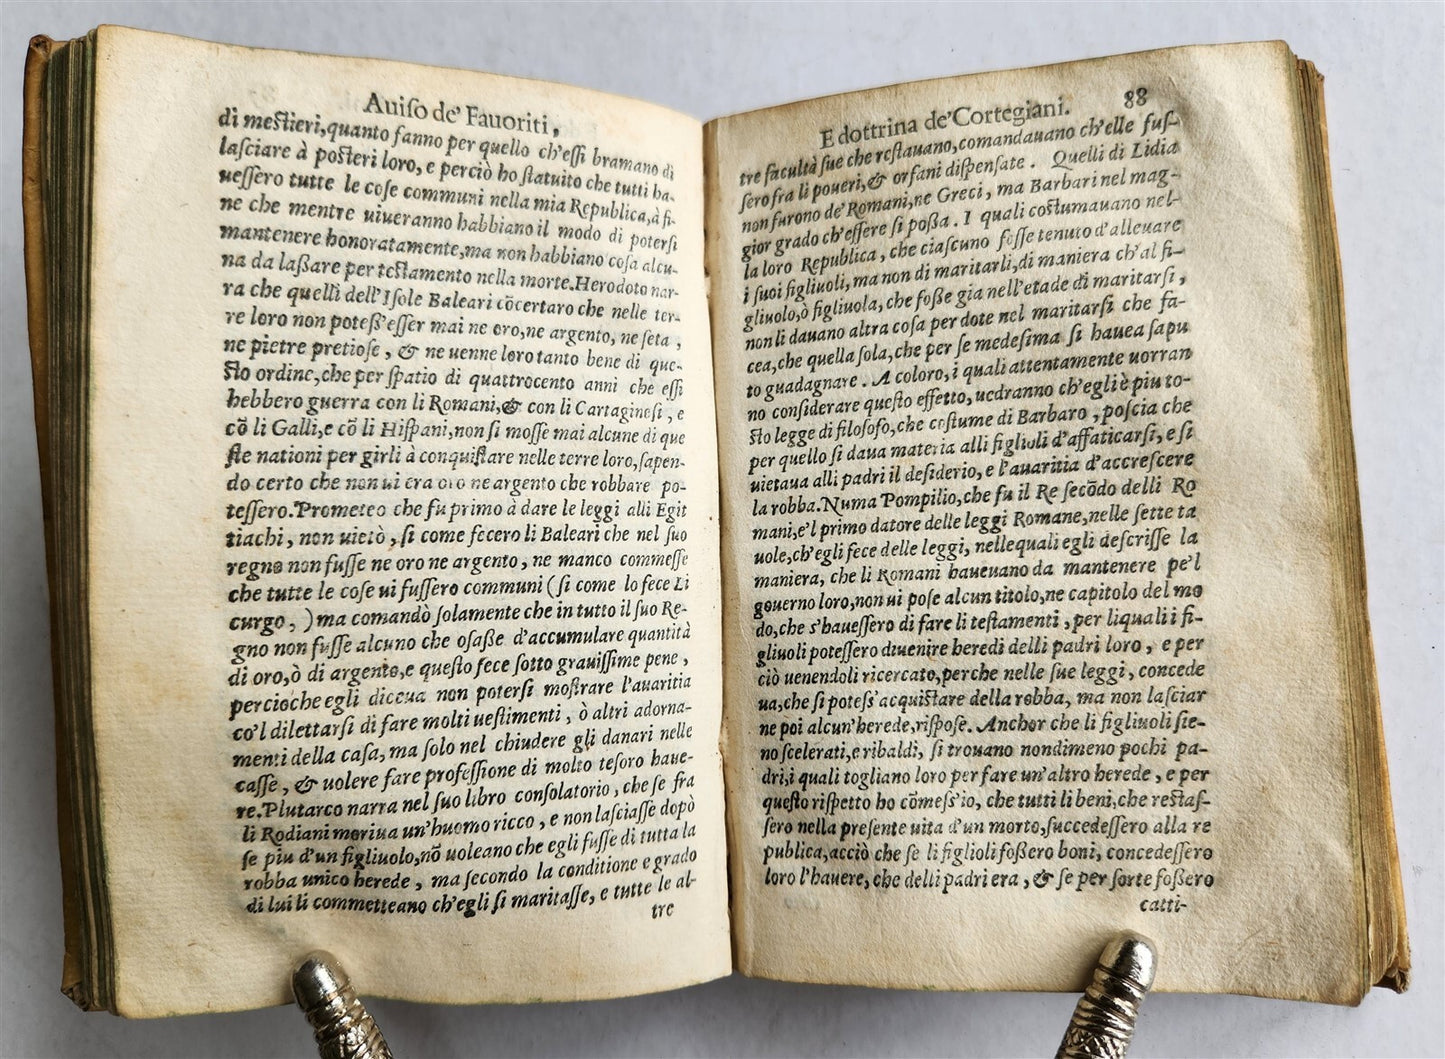 Auiſo de' Fauoriti,
di meſtieri, quanto fanno per quello ch'eſſi bramano di
laſciare à poſteri loro, e perciò ho ſtatuito che tutti ha-
ueſſero tutte le coſe communi nella mia Republica, à fi-
ne che mentre uiueranno habbiano il modo di poterſi
mantenere honoratamente, ma non habbiano coſa alcu-
na da laßare per teſtamento nella morte. Herodoto nar-
ra che quelli dell'Iſole Baleari cõcertaro che nelle ter-
re loro non poteſſ'eſſer mai ne oro, ne argento, ne ſeta,
ne pietre pretioſe, & ne uenne loro tanto bene di que-
ſto ordine, che per ſpatio di quattrocento anni che eſſi
hebbero guerra con li Romani, & con li Cartagineſi, e
cõ li Galli, e cõ li Hiſpani, non ſi moſſe mai alcune di que
ſte nationi per girli à conquiſtare nelle terre loro, ſapen-
do certo che non ui era oro ne argento che robbare po-
teſſero. Prometeo che fu primo à dare le leggi alli Egit
tiachi, non uietò, ſi come fecero li Baleari che nel ſuo
regno non fuſſe ne oro ne argento, ne manco commeſſe
che tutte le coſe ui fuſſero communi (ſi come lo fece Li
curgo,) ma comandò ſolamente che in tutto il ſuo Re-
gno non fuſſe alcuno che oſaße d'accumulare quantità
di oro, ò di argento, e queſto fece ſotto grauiſſime pene,
percioche egli diceua non poterſi moſtrare l'auaritia
co'l dilettarſi di fare molti ueſtimenti, ò altri adorna-
menti della caſa, ma ſolo nel chiudere gli danari nelle
caſſe, & uolere fare profeſſione di molto teſoro haue-
re. Plutarco narra nel ſuo libro conſolatorio, che ſe fra
li Rodiani moriua un'huomo ricco, e non laſciaſſe dopò
ſe piu d'un figliuolo, nõ uoleano che egli fuſſe di tutta la
robba unico herede, ma ſecondo la conditione e grado
di lui li commetteano ch'egli ſi maritaſſe, e tutte le al-
tre
E dottrina de' Cortegiani. 88
tre facultà ſue che reſtauano, comandauano ch'elle fuſ-
ſero fra li poueri, & orfani diſpenſate. Quelli di Lidia
non furono de' Romani, ne Greci, ma Barbari nel mag-
gior grado ch'eſſere ſi poßa. I quali coſtumauano nel-
la loro Republica, che ciaſcuno foſſe tenuto d'alleuare
i ſuoi figliuoli, ma non di maritarli, di maniera ch'al fi-
gliuolo, ò figliuola, che foße gia nell'etade di maritarſi,
non li dauano altra coſa per dote nel maritarſi che fa-
cea, che quella ſola, che per ſe medeſima ſi hauea ſapu
to guadagnare. A coloro, i quali attentamente uorran
no conſiderare queſto effetto, uedranno ch'egli è piu to-
ſto legge di filoſofo, che coſtume di Barbaro, poſcia che
per quello ſi daua materia alli figliuli d'affaticarſi, e ſi
uietaua alli padri il deſiderio, e l'auaritia d'accreſcere
la robba. Numa Pompilio, che fu il Re ſecõdo delli Ro
mani, e'l primo datore delle leggi Romane, nelle ſette ta
uole, ch'egli fece delle leggi, nelle quali egli deſcriſſe la
maniera, che li Romani haueuano da mantenere pe'l
gouerno loro, non ui poſe alcun titolo, ne capitolo del mo
do, che s'haueſſero di fare li teſtamenti, per li quali i fi-
gliuoli poteſſero diuenire heredi delli padri loro, e per
ciò uenendoli ricercato, perche nelle ſue leggi, concede
ua, che ſi poteſſ'acquiſtare della robba, ma non laſciar
ne poi alcun'herede, riſpoſe. Anchor che li figliuoli ſie-
no ſcelerati, e ribaldi, ſi trouano nondimeno pochi pa-
dri, i quali togliano loro per fare un'altro herede, e per
queſto riſpetto ho cõmeſſ'io, che tutti li beni, che reſtaſ-
ſero nella preſente uita d'un morto, ſuccedeſſero alla re
publica, acciò che ſe li figlioli foßero boni, concedeſſero
loro l'hauere, che delli padri era, & ſe per ſorte foßero
catti-